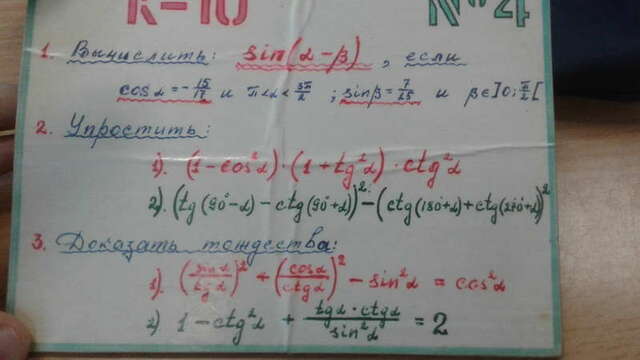 К-10 №4
1. Вычислить: sin(α-β), если
cosα = -15/17 и π<α<3π/2; sinβ = 7/25 и β∈]0; π/2[
2. Упростить:
1). (1-cos²α)·(1+tg²α)·ctg²α
2). (tg(90°-α)-ctg(90°+α))²-(ctg(180°+α)+ctg(270°+α))²
3. Доказать тождества:
1). (sinα/tgα)² + (cosα/ctgα)² - sin²α = cos²α
2) 1-ctg²α + tgα·ctgα/sin²α = 2